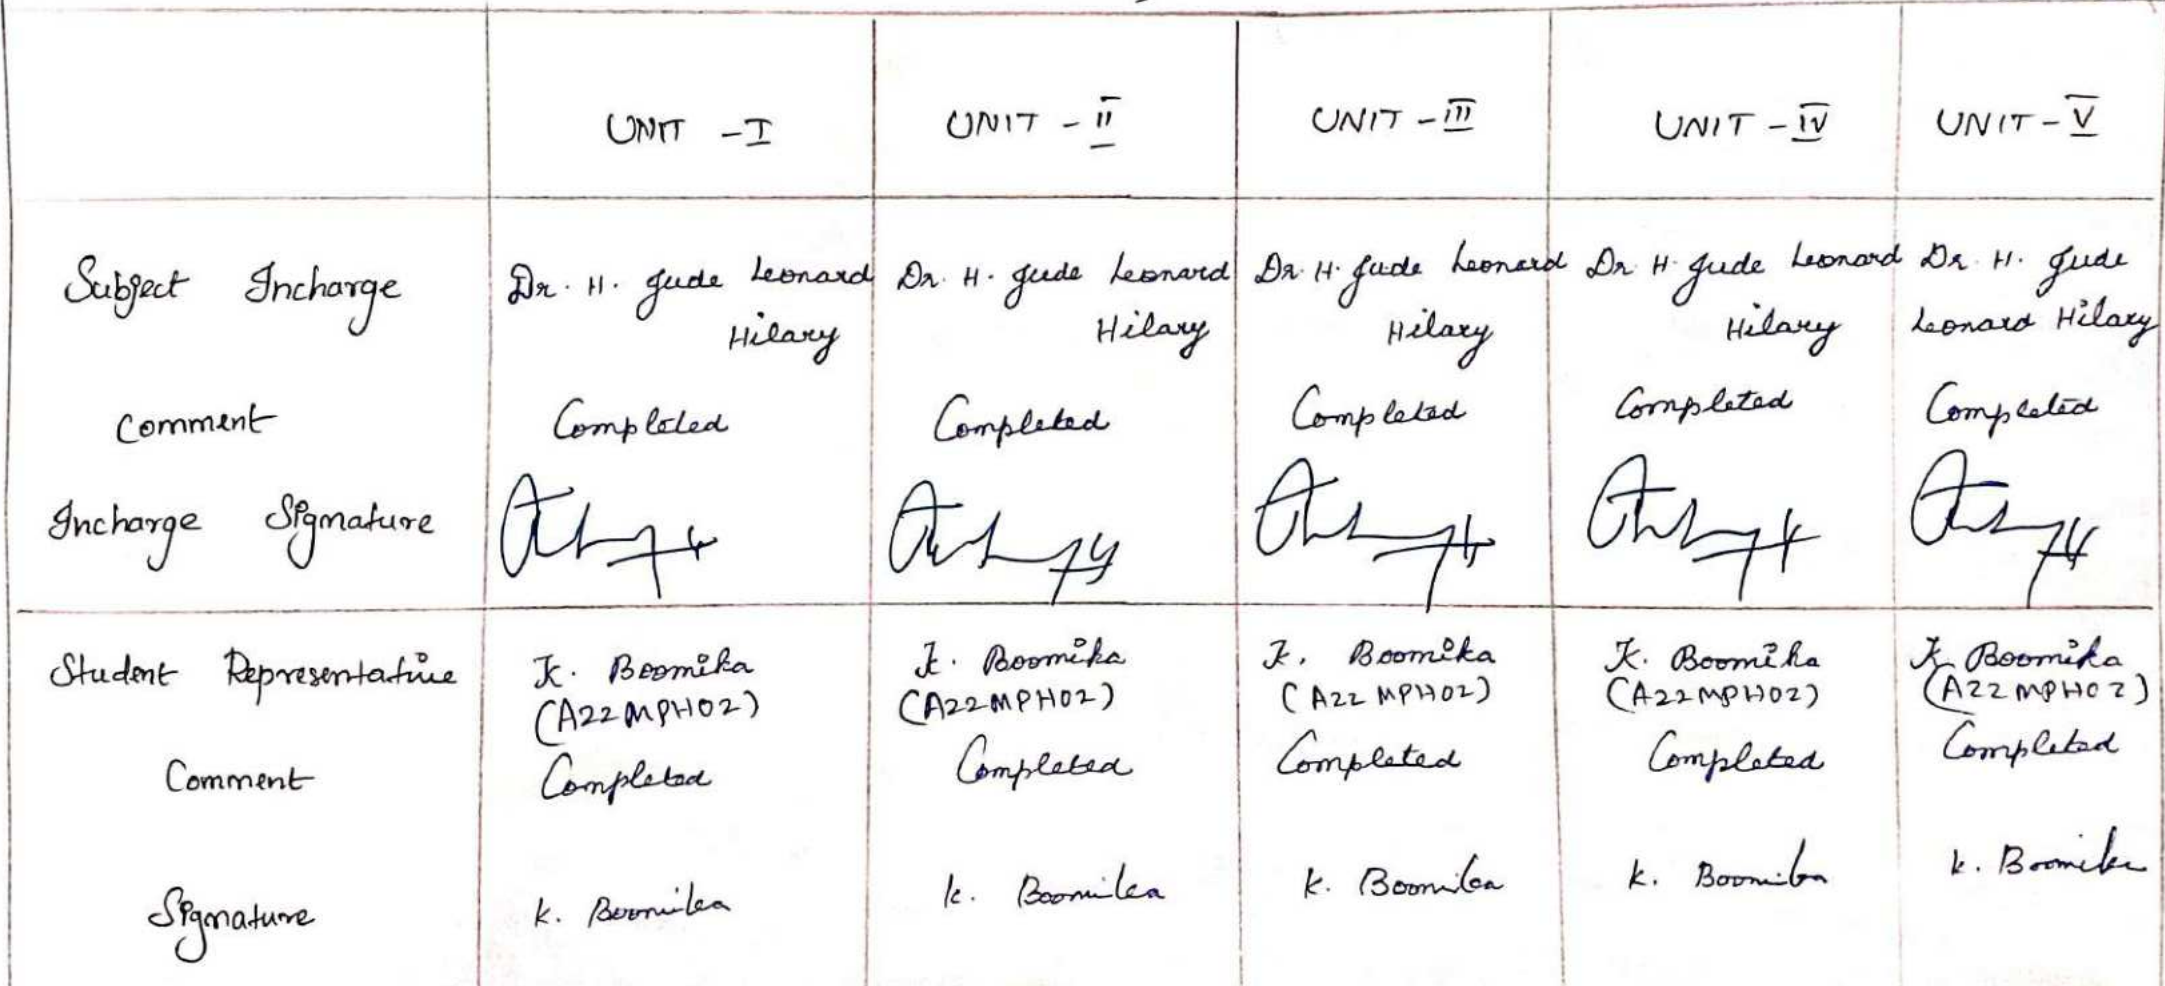 UNIT - I UNIT - II UNIT - III UNIT - IV UNIT - V
Subject Incharge Dr. H. Jude Leonard Dr. H. Jude Leonard Dr. H. Jude Leonard Dr. H. Jude Leonard Dr. H. Jude
Hilary Hilary Hilary Hilary Leonard Hilary
Comment Completed Completed Completed Completed Completed
Incharge Signature
Student Representative K. Boomika K. Boomika K. Boomika K. Boomika K. Boomika
(A22MPH02) (A22MPH02) (A22MPH02) (A22MPH02) (A22MPH02)
Comment Completed Completed Completed Completed Completed
Signature K. Boomika K. Boomika K. Boomika K. Boomika K. Boomika